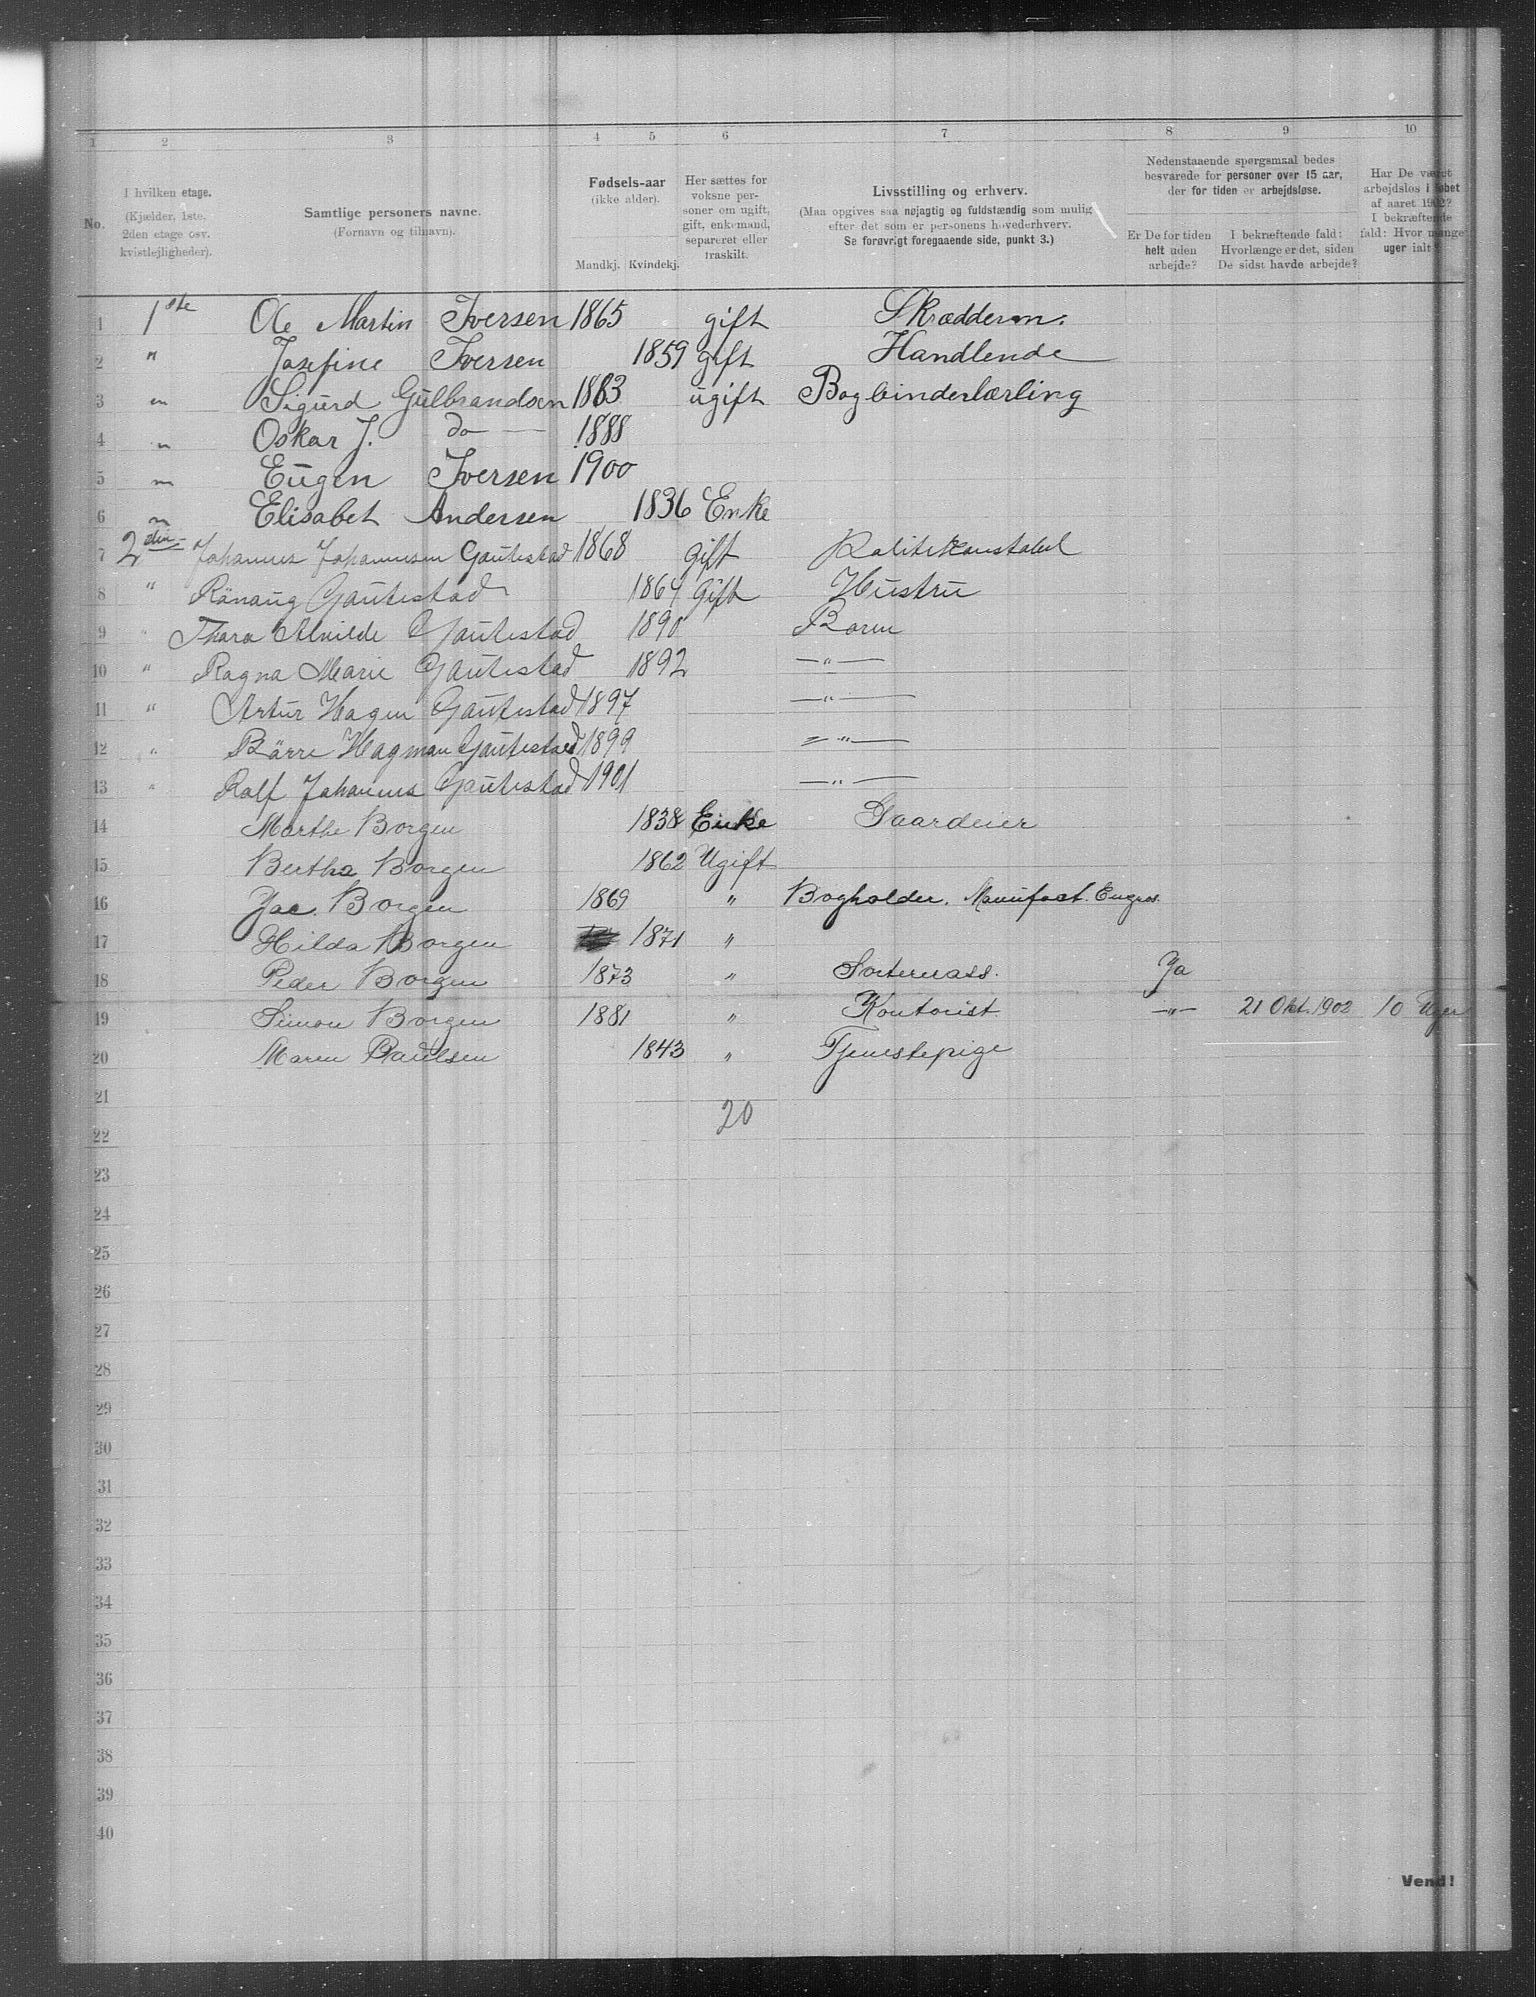 1 2 3 4 5 6 7 8 9 10
No.
I hvilken etage.
(Kjælder, 1ste, 2den etage osv. kvistlejligheder).
Samtlige personers navne.
(Fornavn og tilnavn).
Fødsels-aar
(ikke alder).
Mandkj. Kvindekj.
Her sættes for voksne personer om ugift, gift, enkemand, separeret eller fraskilt.
Livsstilling og erhverv.
(Maa opgives saa nøjagtig og fuldstændig som mulig efter det som er personens hovederhverv.
Se forøvrigt foregaaende side, punkt 3.)
Nedenstaaende spørgsmaal bedes besvarede for personer over 15 aar, der for tiden er arbejdsløse.
Er De for tiden helt uden arbejde?
I bekræftende fald: Hvorlænge er det, siden De sidst havde arbejde?
Har De været arbejdsløs i løbet af aaret 1902? I bekræftende fald: Hvor mange uger ialt?
1 1ste Ole Martin Iversen 1865 gift Skrædderm.
2 " Josefine Iversen 1859 gift Handlende
3 " Sigurd Gulbrandsen 1883 ugift Bogbinderlærling
4 " Oskar J. do 1888
5 " Eugen Iversen 1900
6 " Elisabet Andersen 1836 Enke
7 2den Johannes Johannesen Gautestad 1868 gift Politikonstabel
8 " Rönaug Gautestad 1864 Gift Hustru
9 " Thora Alvilde Gautestad 1890 Barn
10 " Ragna Marie Gautestad 1892 — " —
11 " Artur Hagen Gautestad 1897 — " —
12 " Börre Hagman Gautestad 1899 — " —
13 " Rolf Johannes Gautestad 1901 — " —
14 Marthe Borgen 1838 Enke Gaardeier
15 Bertha Borgen 1862 Ugift
16 Jac. Borgen 1869 " Bogholder. Manufact. Engros.
17 Hilda Borgen 1871 "
18 Peder Borgen 1873 " Ja
19 Simon Borgen 1881 " Kontorist — " — 21 Okt. 1902 10 Uger
20 Maren Paulsen 1843 " Tjenestepige
21
20
22
23
24
25
26
27
28
29
30
31
32
33
34
35
36
37
38
39
40
Vend!